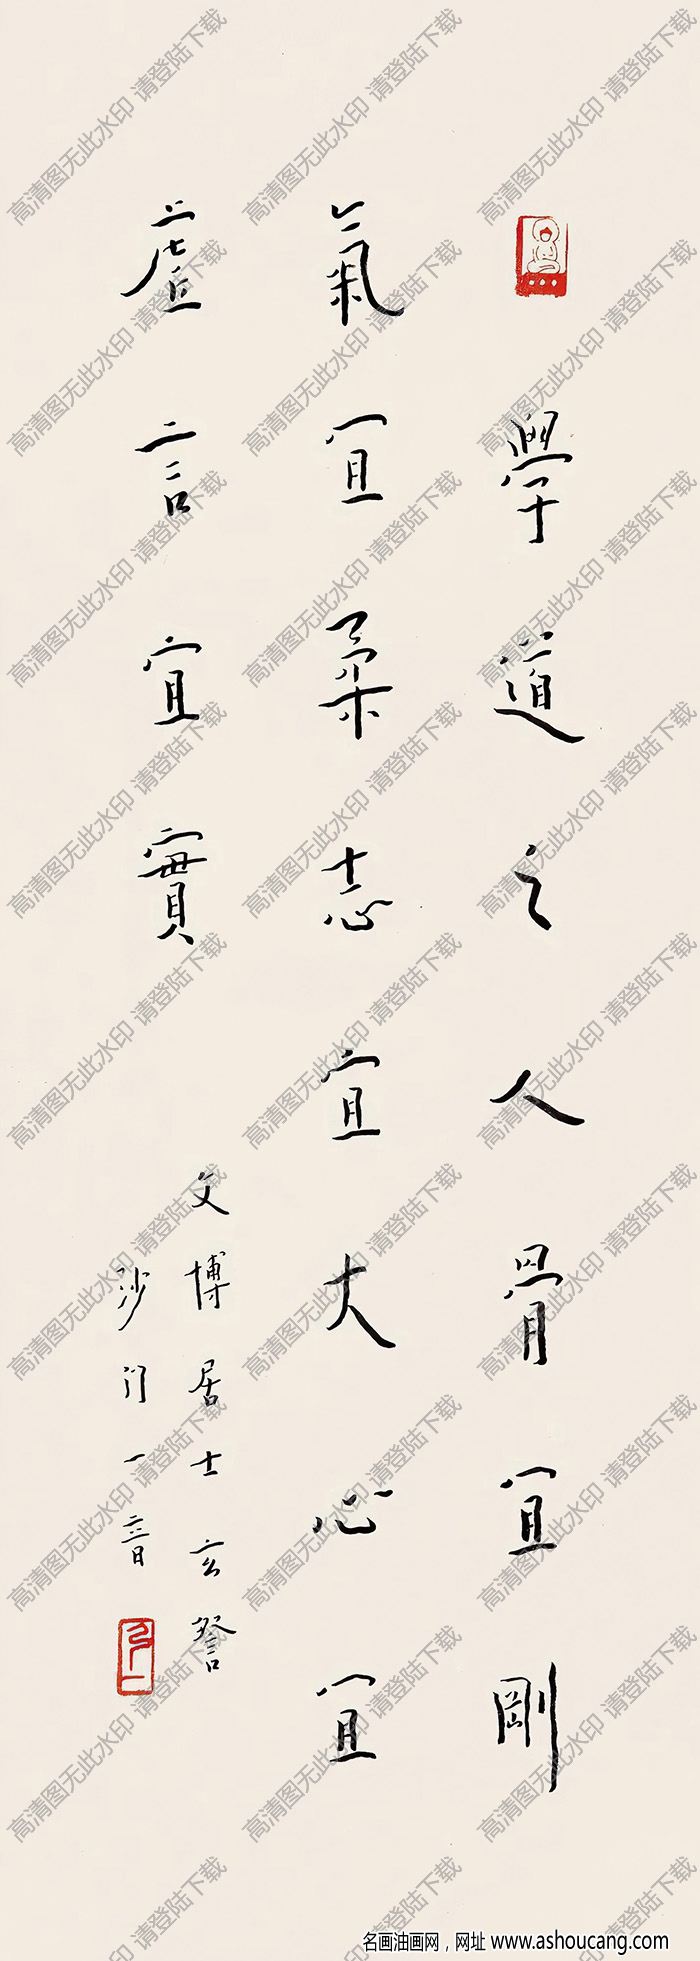 學道之人骨宜剛
氣宜柔志宜大心宜
虛言宜實
文博居士玄詧
沙门一音
高清图无此水印 请登陆下载
名画油画网，网址 www.ashoucang.com